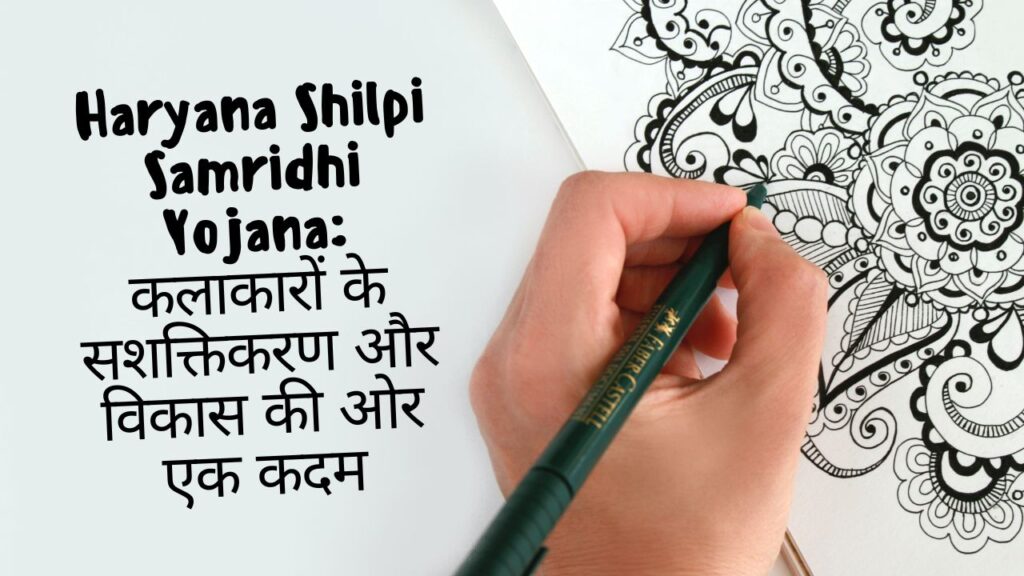 Haryana Shilpi
Samridhi
Yojana:
कलाकारों के
सशक्तिकरण और
विकास की ओर
एक कदम
FABER CASTELL